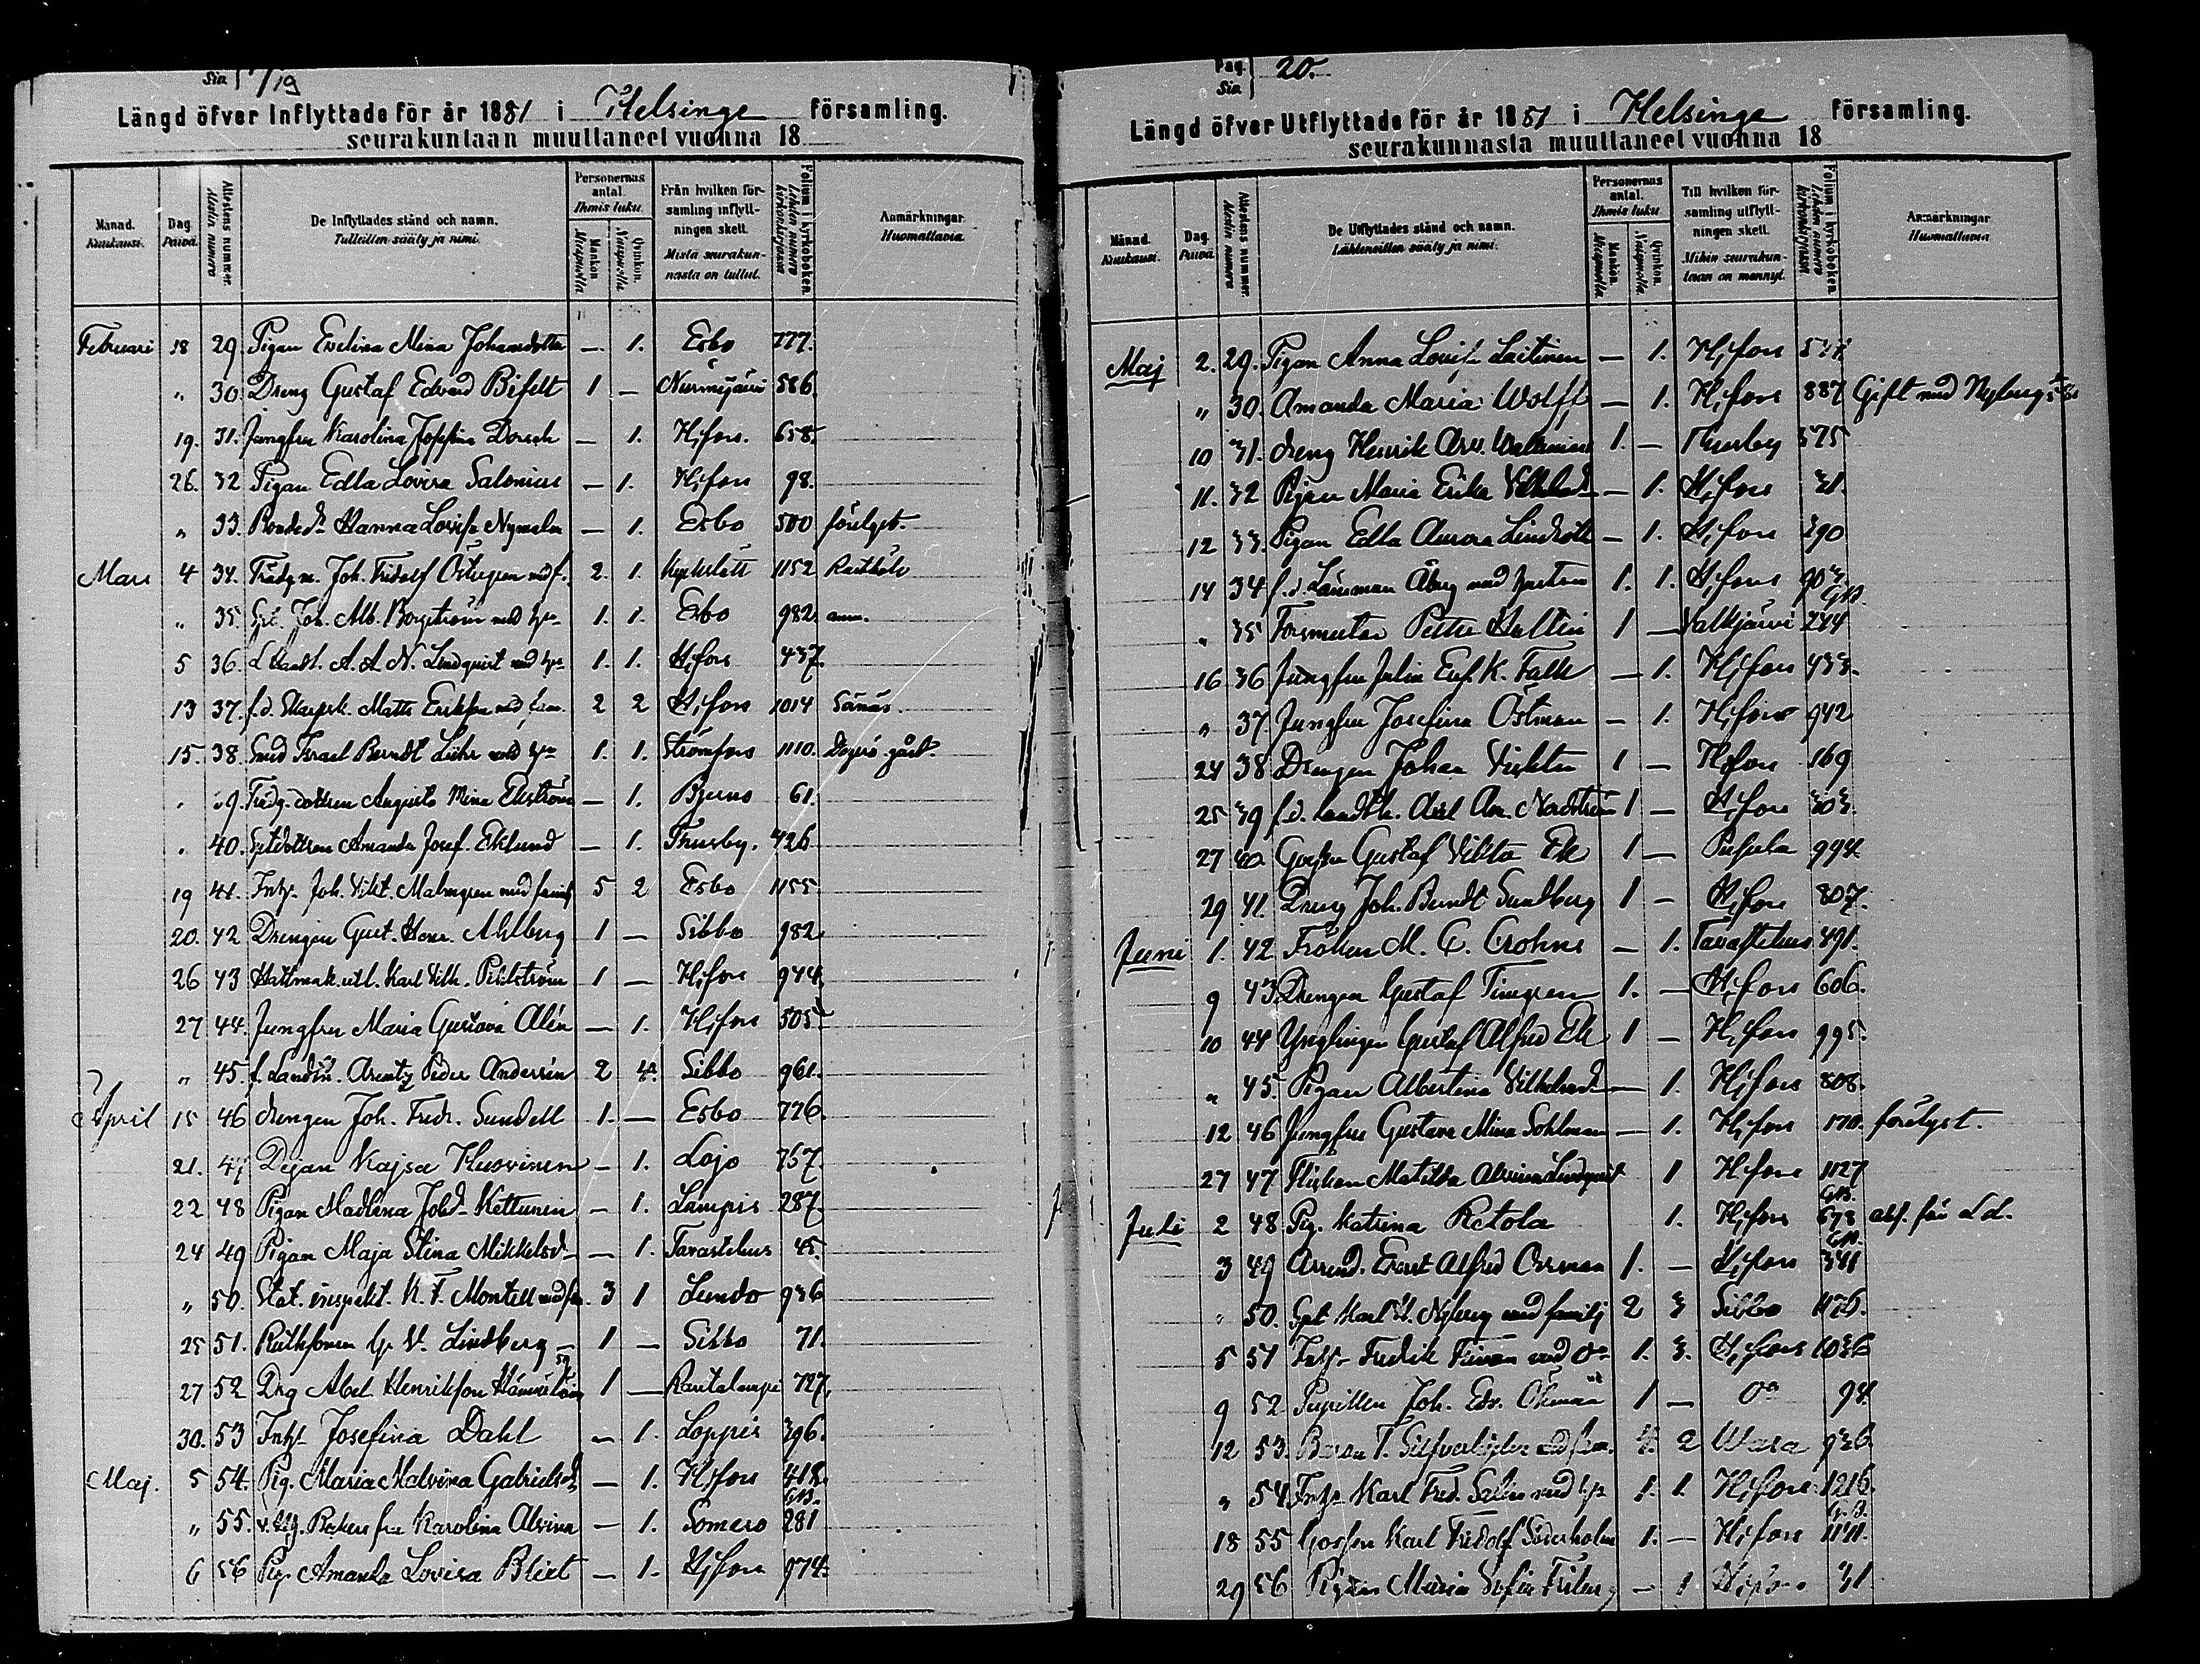 Sio. 19
Längd öfver Inflyttade för år 1881 i Helsinge församling.
seurakuntaan muuttaneet vuonna 18
Månad. Kuukausi.
Dag. Päivä.
Attestens nummer. Atestin numero
De Inflyttades stånd och namn. Tulleitten sääty ja nimi.
Personernas antal. Ihmis luku.
Mankön. Miespuolia
Qvinkön. Naispuolia
Från hvilken församling inflyttningen skett. Mistä seurakunnasta on tullut.
Folium i kyrkoboken. Lehden numero kirkonkirjassa
Anmärkningar. Huomattavia.
Februari 18 29. Pigan Evelina Mina Johansdotter — 1. Esbo 777.
„ 30. Dreng Gustaf Edvard Bifelt 1 — Nurmijärvi 586.
19. 31. Jungfru Karolina Josefina Dorsch — 1. H,fors. 658.
26. 32 Pigan Edla Lovisa Salonius — 1. H,fors 98.
„ 33. Bonded. Hanna Lovisa Nyman — 1. Esbo 500 förelyst.
Mars 4 34. Trädg.m. Joh. Fridolf Östergren med f. 2. 1. Kyrkslätt 1152
„ 35. Joh. Alb. Borgström med 1. 1. Esbo 982.
5 36. A. A. N. Lindqvist med 1. 1. H,fors 437.
13 37. f.d. Matts Erikson med fam. 2 2 H,fors 1014
15. 38. Smed Israel Berndt Löhr med 1. 1. Strömfors 1110. Degerö gård.
„ 39. Trädg. dottren Augusta Mina Ekström — 1. Bjerno 61.
„ 40. Amanda Josef. Eklund — 1. Thusby. 426.
19 41. Inhs. Joh. Vikt. Malmgren med familj 5 2 Esbo 1155
20. 42 Drengen Gust. Herm. Ahlberg 1 — Sibbo 982.
26 43 Karl Vilh. 1 — H,fors 974.
27 44. Jungfru Maria Gustava Alén — 1. H,fors 505.
„ 45. f. Landb. Arentz Peder Andersén 2 4. Sibbo 961.
April 15 46 drengen Joh. Fredr. Sundell 1. — Esbo 776.
21. 47 Pigan Kajsa Huovinen — 1. Lojo 757.
22 48 Pigan Madlena Johd. Kettunen — 1. Lampis 287.
24 49 Pigan Maja Stina Mikkelsd. — 1. Tavastehus 45.
„ 50. Stat. inspekt. K. F. Montell med fam. 3 1 Lundo 936
25 51. V. Lindberg — 1 — Sibbo 71.
27 52 Drg Abel Henrikson 1 — Rautalampi 727.
30. 53 Inhs. Josefina Dahl — 1. Loppis 396.
Maj. 5 54. Pig. Maria Malvina Gabrielsd. — 1. H,fors 418.
„ 55. Karolina Alvina — 1. Somero 281
6 56 Pig. Amanda Lovisa Blixt — 1. H,fors 974.
Pag. Sio. 20.
Längd öfver Utflyttade för år 1881 i Helsinge församling.
seurakunnasta muuttaneet vuonna 18
Månad. Kuukausi.
Dag. Päivä.
Attestens nummer. Atestin numero
De Utflyttades stånd och namn. Lähteneitten sääty ja nimi.
Personernas antal. Ihmis luku
Mankön. Miespuolia
Qvinkön. Naispuolia
Till hvilken församling utflyttningen skett. Mihin seurakuntaan on mennyt.
Folium i kyrkoboken. Lehden numero kirkonkirjassa
Anmärkningar. Huomattavia
Maj 2. 29. Pigan Anna Lovisa Laitinen — 1. H,fors 547
„ 30. Amanda Maria Wolff — 1. H,fors 887 Gift med Nyberg
10 31. dreng Henrik 1. — Thusby 575
11. 32 Pigan Maria Erika — 1. H,fors 31.
12 33. Pigan Edla Aurora — 1. H,fors 390
14 34 f.d. Länsman Åberg med hustru 1. 1. H,fors
„ 35 Petter Hultin 1 — Valkjärvi 244
16 36 Jungfru Julia Euf. K. Falk — 1. H,fors 433.
„ 37. Jungfru Josefina Östman — 1. H,fors 942
24 38 Drengen Johan Viktor 1 — H,fors 169
25 39 f.d. Axel Nordström 1 — H,fors 303.
27 40. Gossen Gustaf Viktor Ek 1 — Pusula 994.
29 41. Dreng Joh. Berndt Sundberg 1 — H,fors 807.
Juni 1. 42 Fröken M. C. Crohns — 1. Tavastehus 491.
9 43 Drengen Gustaf Timgren 1. — H,fors 606.
10 44 Ynglingen Gustaf Alfred Ek 1 — H,fors 995.
„ 45. Pigan Albertina Vilhelmsd. — 1. H,fors 808.
12 46 Jungfru Gustava Mina Sohlman — 1. H,fors 170. förelyst.
27 47 Flickan Matilda Alvina Lindqvist 1 H,fors 1127
Juli 2 48. Pig. Katrina Retola 1. H,fors 678
3 49 Arrend. Ernst Alfred Öhman 1. — H,fors 341
„ 50. Karl H. Nyberg med familj 2 3 Sibbo 1176.
5 51 Inhs. Fredrik med 1. 3. H,fors 1036
9 52 Pupillen Joh. Edv. Öhman 1 — do 98.
12 53. Baron T. med fam. 4. 2 Wasa 936.
„ 54 Inhs. Karl Fred. med 1. 1 H,fors 1216.
18 55 Gossen Karl Fridolf Söderholm 1. — H,fors 1141.
29 56 Pigan Maria Sofia Friberg — 1 H,fors 31